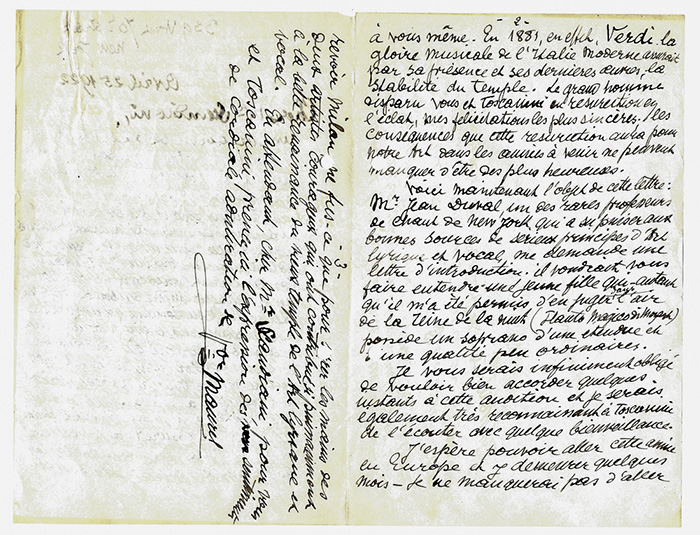 -2-
à vous même. En 1881, en effet, Verdi la
gloire musicale de l'Italie Moderne assurait
par sa présence et ses dernières œuvres, la
stabilité du Temple. Le grand homme
disparu vous et Toscanini en resurection
l'éclat, mes félicitations les plus sincères. Les
conséquences que cette resurection aura pour
notre Art dans les années à venir ne peuvent
manquer d'être des plus heureuses.
Voici maintenant l'objet de cette lettre.
Mr Jean Duval un des rares professeurs
de chant de New York, qui a su puiser aux
bonnes sources de serieux principes d'Art
lyrique et vocal, me demande une
lettre d'introduction. il voudrait vous
faire entendre une jeune fille qui - autant
qu'il m'a été permis d'en juger dans l'air
de la reine de la nuit (Flauto Magico di Mozart)
possède un soprano d'une étendue et
d'une qualité peu ordinaires.
Je vous serais infiniment obligé
de vouloir bien accorder quelques
instants à cette audition et je serais
également très reconnaissant à Toscanini
de l'écouter avec quelque bienveillance.
J'espère pouvoir aller cette année
en Europe et y demeurer quelques
mois - Je ne manquerai pas d'aller
-3-
revoir Milan ne fus-ce que pour serrer les mains des
deux artistes courageux qui ont contribué si puissamment
à la belle renaissance du vieux temple de l'Art lyrique et
vocal. En attendant, cher Mr Scandiani, pour vous
et Toscanini, prenez l'expression des sentiments
de cordiale admiration de
Vor Maurel
Avril 25 1922